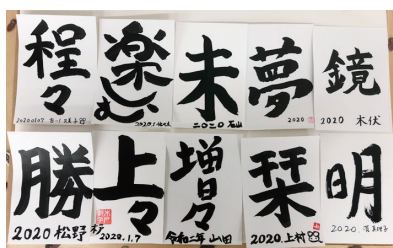 程々
20200107
楽しむ
2020.1.
未
2020 石山
夢
2020
鏡
2020 木伏
勝
2020 松野
上々
2020.1.7
増々
令和二年 山田
栞
2020.上村
明
2020.